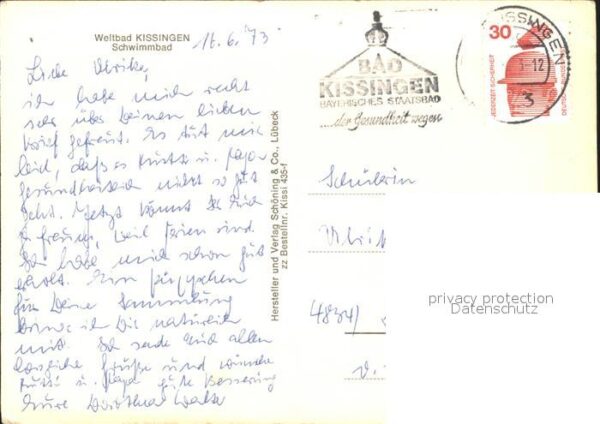 Weltbad KISSINGEN
Schwimmbad
16.6.73
Liebe Ulrike,
ich habe mich recht
sehr über Deinen lieben
Brief gefreut. Es tut mir
leid, daß es Mutti u. Papa
gesundheitlich nicht so gut
geht. Jetzt könnt Ihr Euch
freuen, weil Ferien sind.
Ich habe mich schon gut
erholt. Ein Püppchen
für Deine Sammlung
bringe ich Dir natürlich
mit. Ich sende Euch allen
herzliche Grüße und wünsche
Mutti u. Papa gute Besserung
Eure Dorothea
Hersteller und Verlag Schöning & Co., Lübeck
zz Bestellnr. Kissi 435-f
BAD
KISSINGEN
BAYERISCHES STAATSBAD
...der Gesundheit wegen
KISSINGEN
-12
3
30
JEDERZEIT SICHERHEIT
DEUTSCHE
Schülerin
4834
privacy protection
Datenschutz